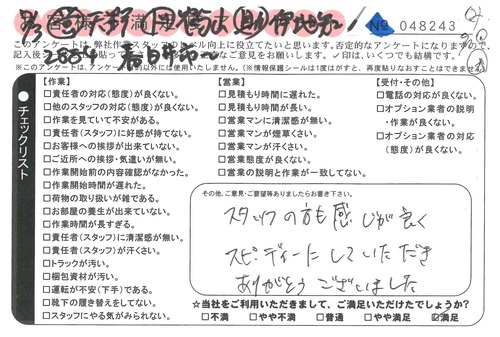 お客様
満
№ 048243
このアンケートは、弊社作業スタッフのレベル向上に役立てたいと思います。否定的なアンケートになりますので、
ご意見をお願いします。✓印は、いくつでも結構です。
※このアンケートは、
以外には使用いたしません。(※情報保護シールは1度はがすと、再度貼りなおすことはできません
チェックリスト
【作業】
□責任者の対応(態度)が良くない。
□他のスタッフの対応(態度)が良くない。
□作業を見ていて不安がある。
□責任者(スタッフ)に好感が持てない。
□お客様への挨拶が出来ていない。
□ご近所への挨拶・気遣いが無い。
□作業開始前の内容確認がなかった。
□作業開始時間が遅れた。
□荷物の取り扱いが雑である。
□お部屋の養生が出来ていない。
□作業時間が長すぎる。
□責任者(スタッフ)に清潔感が無い。
□責任者(スタッフ)が汗くさい。
□トラックが汚い。
□梱包資材が汚い。
□運転が不安(下手)である。
□靴下の履き替えをしてない。
□スタッフにやる気がみられない。
【営業】
□見積もり時間に遅れた。
□見積もり時間が長い。
□営業マンに清潔感が無い。
□営業マンが煙草くさい。
□営業マンが汗くさい。
□営業態度が良くない。
□営業の説明と作業が一致してない。
【受付・その他】
□電話の対応が良くない。
□オプション業者の説明
・作業が良くない。
□オプション業者の対応
(態度)が良くない。
その他、ご意見・ご要望等ありましたらお書き下さい。
スタッフの方も感じが良く
スピーディーにしていただき
ありがとうございました
☆当社をご利用いただきまして、ご満足いただけたでしょうか?
□不満 □やや不満 □普通 □やや満足 ☑満足